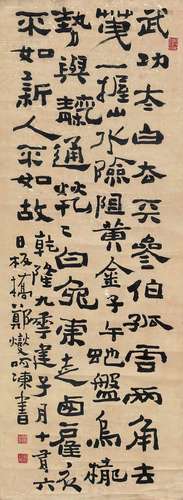 武功太白去天參伯孤雲兩角去
天一握山水險阻黃金子午虵盤烏櫳
勢與天通煢煢白兔東走西顧衣
不如新人不如故
乾隆九年建子月十有六
日板橋鄭燮呵凍書